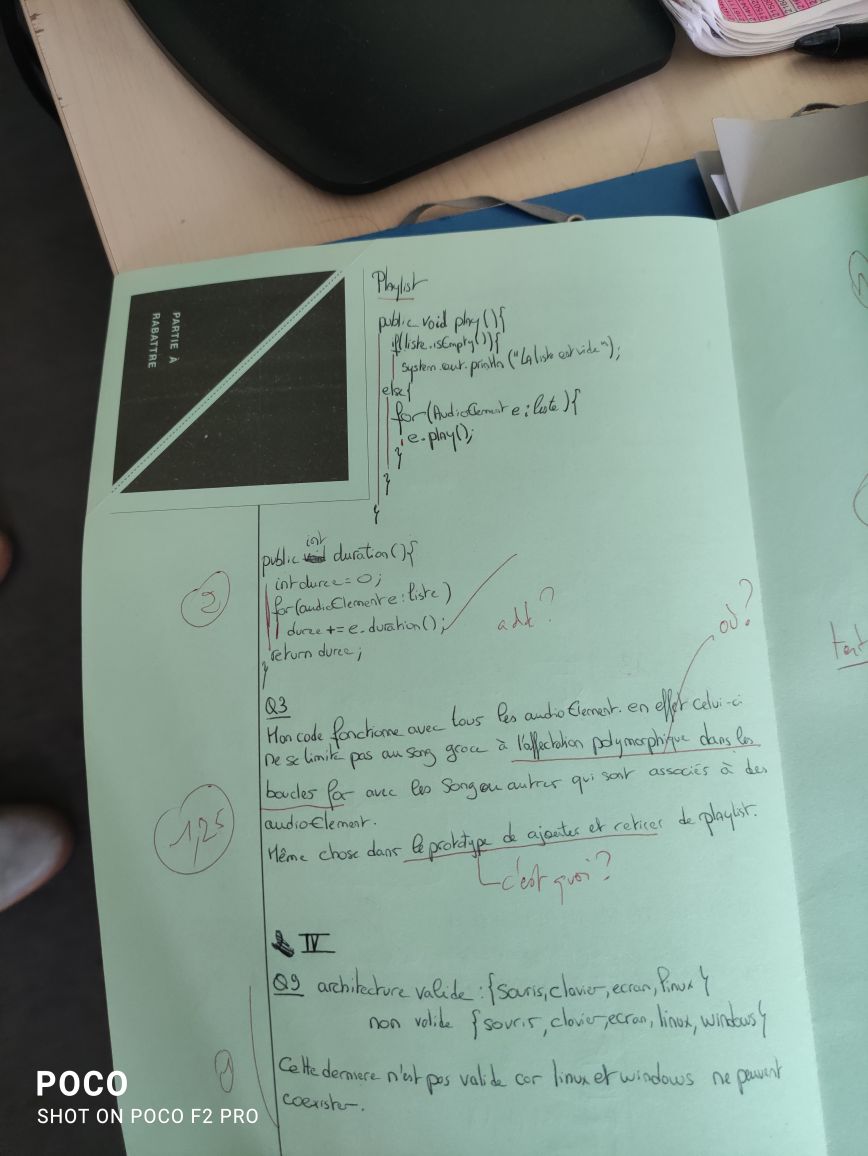 PARTIE À
RABATTRE
Playlist
public void play(){
if(liste.isEmpty()){
system.out.println("LA liste est vide");
else{
for(AudioElement e : liste){
e.play();
}
}
}
int
public void duration(){
int duree = 0;
for(audioElement e : liste)
duree += e.duration();
return duree;
}
2
add?
où?
Q3
Mon code fonctionne avec tous les audioElement. en effet celui-ci
ne se limite pas au song grace à l'affectation polymorphique dans les
boucles for avec les Song ou autres qui sont associés à des
audioElement.
Même chose dans le prototype de ajouter et retirer de playlist.
1,25
c'est quoi?
IV
Q9 architecture valide : {souris, clavier, ecran, linux}
non valide {souris, clavier, ecran, linux, windows}
Cette derniere n'est pas valide car linux et windows ne peuvent
coexister.
POCO
SHOT ON POCO F2 PRO